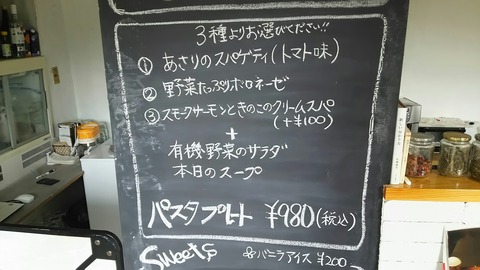 3種よりお選びください!!
① あさりのスパゲティ(トマト味)
② 野菜たっぷりボロネーゼ
③ スモークサーモンときのこのクリームスパ
(+¥100)
+
有機野菜のサラダ
本日のスープ
パスタプレート ¥980(税込)
Sweets
バニラアイス ¥200